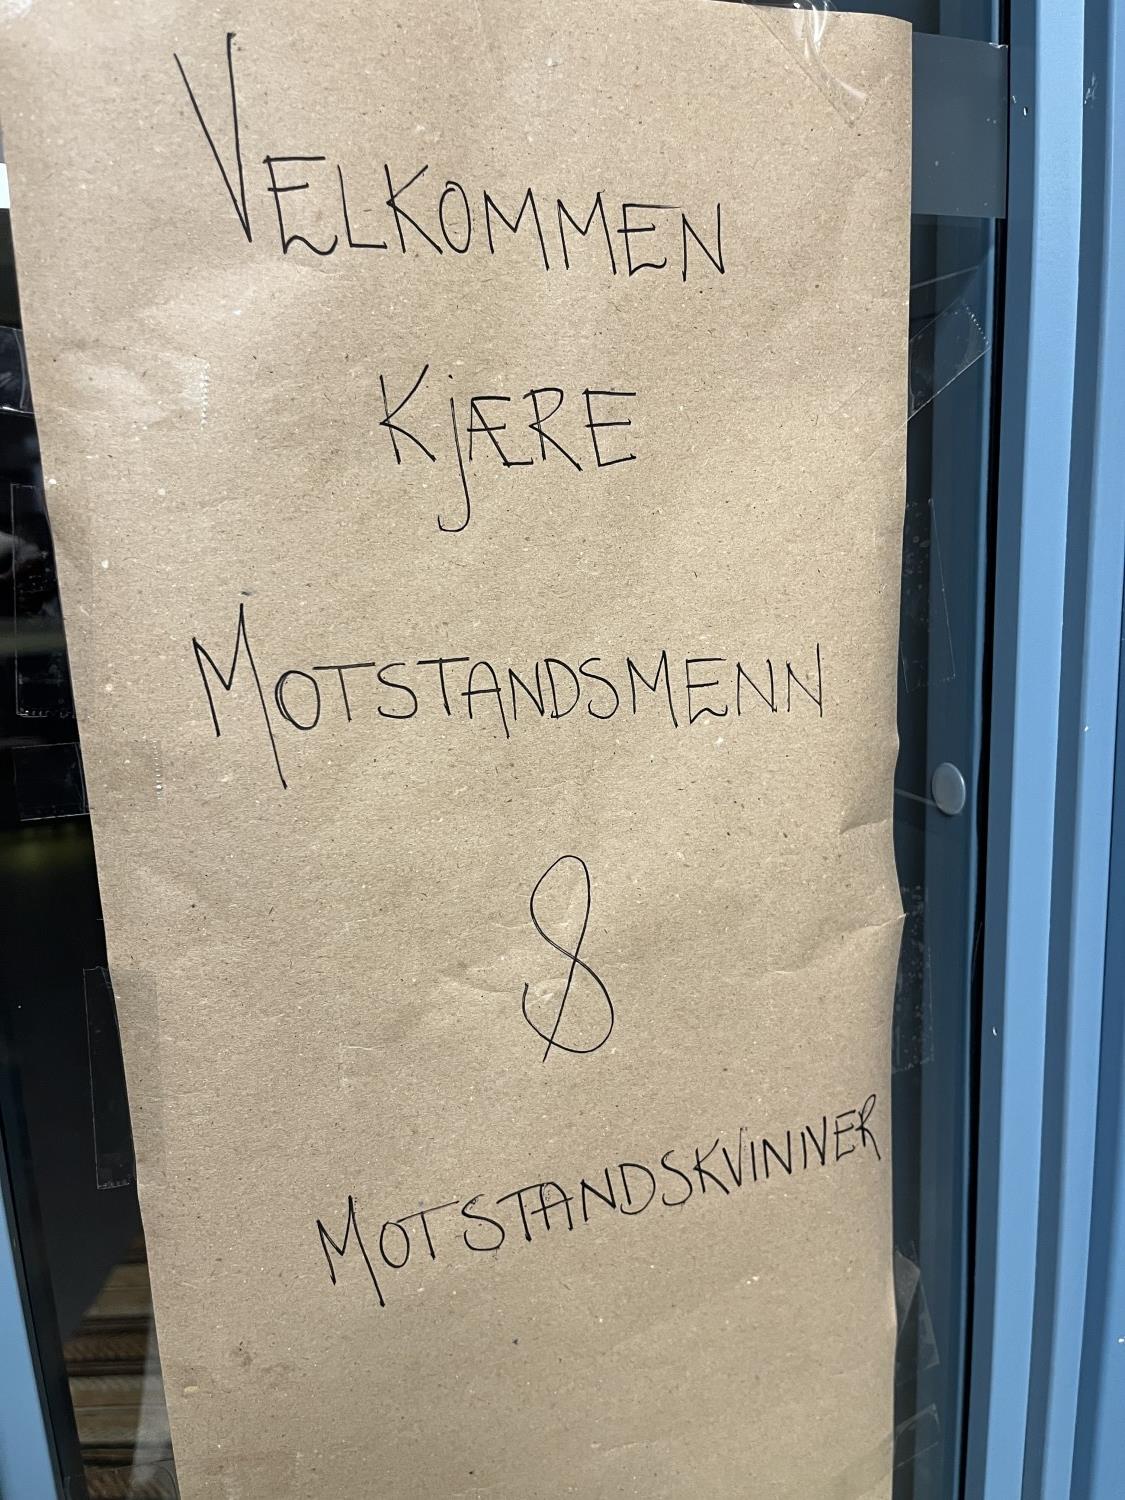 VELKOMMEN
KJÆRE
MOTSTANDSMENN
&
MOTSTANDSKVINNER